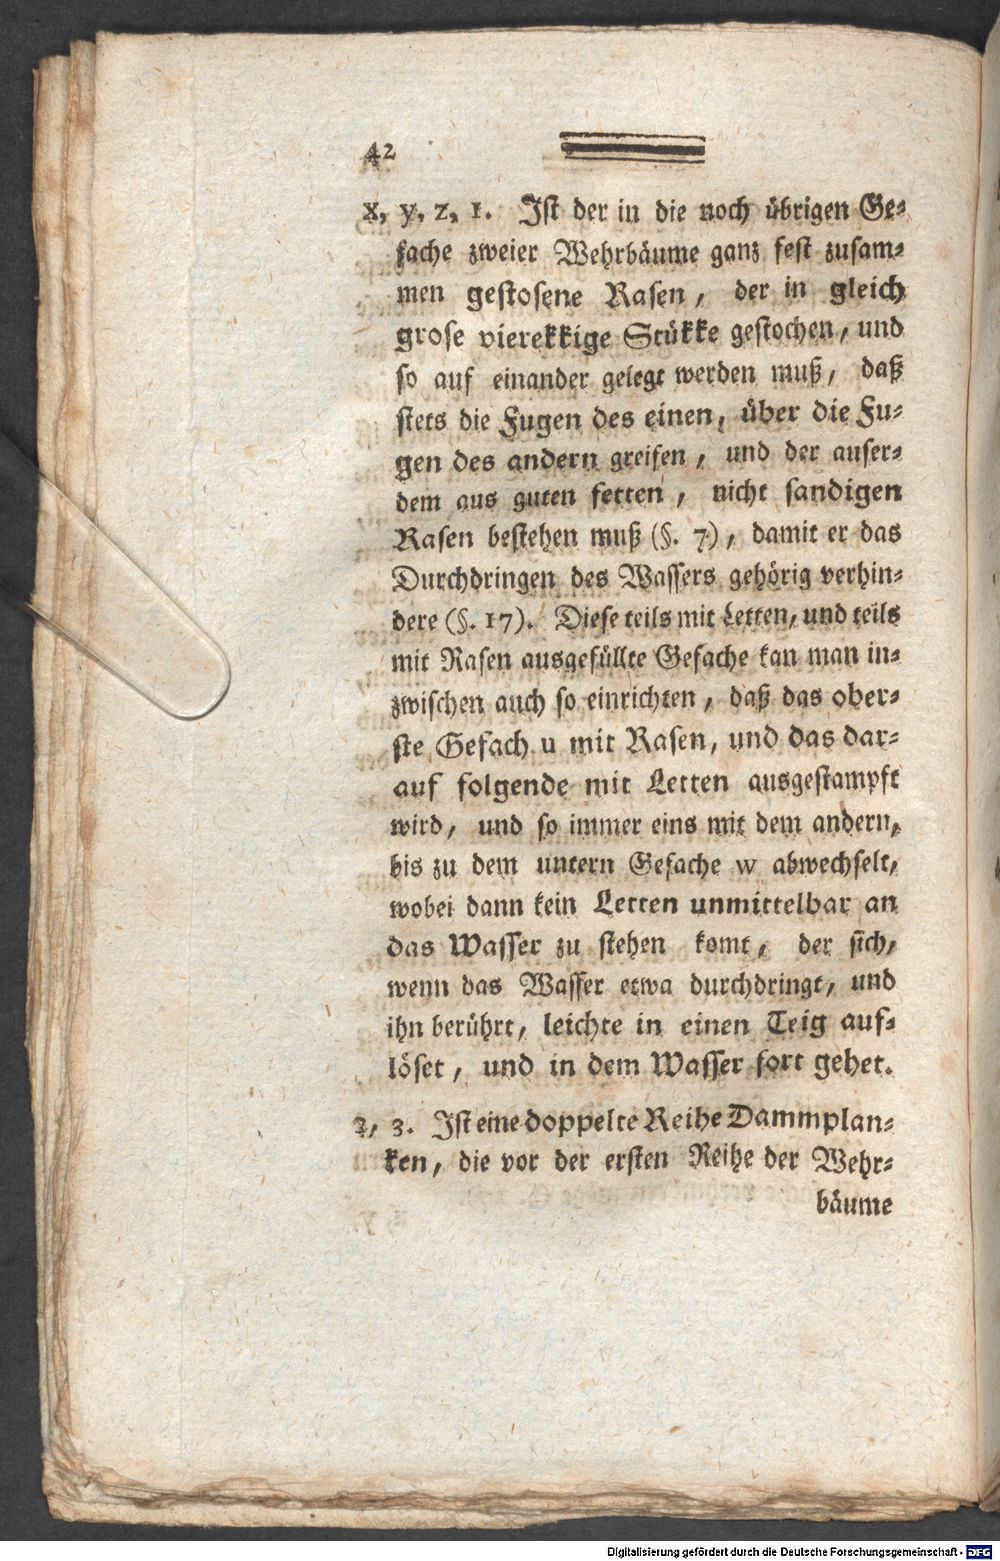 42
x, y, z, 1. Ist der in die noch übrigen Ge-
fache zweier Wehrbäume ganz fest zusam-
men gestosene Rasen, der in gleich
grose vierekkige Stükke gestochen, und
so auf einander gelegt werden muß, daß
stets die Fugen des einen, über die Fu-
gen des andern greifen, und der auser-
dem aus guten fetten, nicht sandigen
Rasen bestehen muß (§. 7), damit er das
Durchdringen des Wassers gehörig verhin-
dere (§. 17). Diese teils mit Letten, und teils
mit Rasen ausgefüllte Gefache kan man in-
zwischen auch so einrichten, daß das ober-
ste Gefach u mit Rasen, und das dar-
auf folgende mit Letten ausgestampft
wird, und so immer eins mit dem andern,
bis zu dem untern Gefache w abwechselt,
wobei dann kein Letten unmittelbar an
das Wasser zu stehen komt, der sich,
wenn das Wasser etwa durchdringt, und
ihn berührt, leichte in einen Teig auf-
löset, und in dem Wasser fort gehet.
2, 3. Ist eine doppelte Reihe Dammplan-
ken, die vor der ersten Reihe der Wehr-
bäume
Digitalisierung gefördert durch die Deutsche Forschungsgemeinschaft - DFG